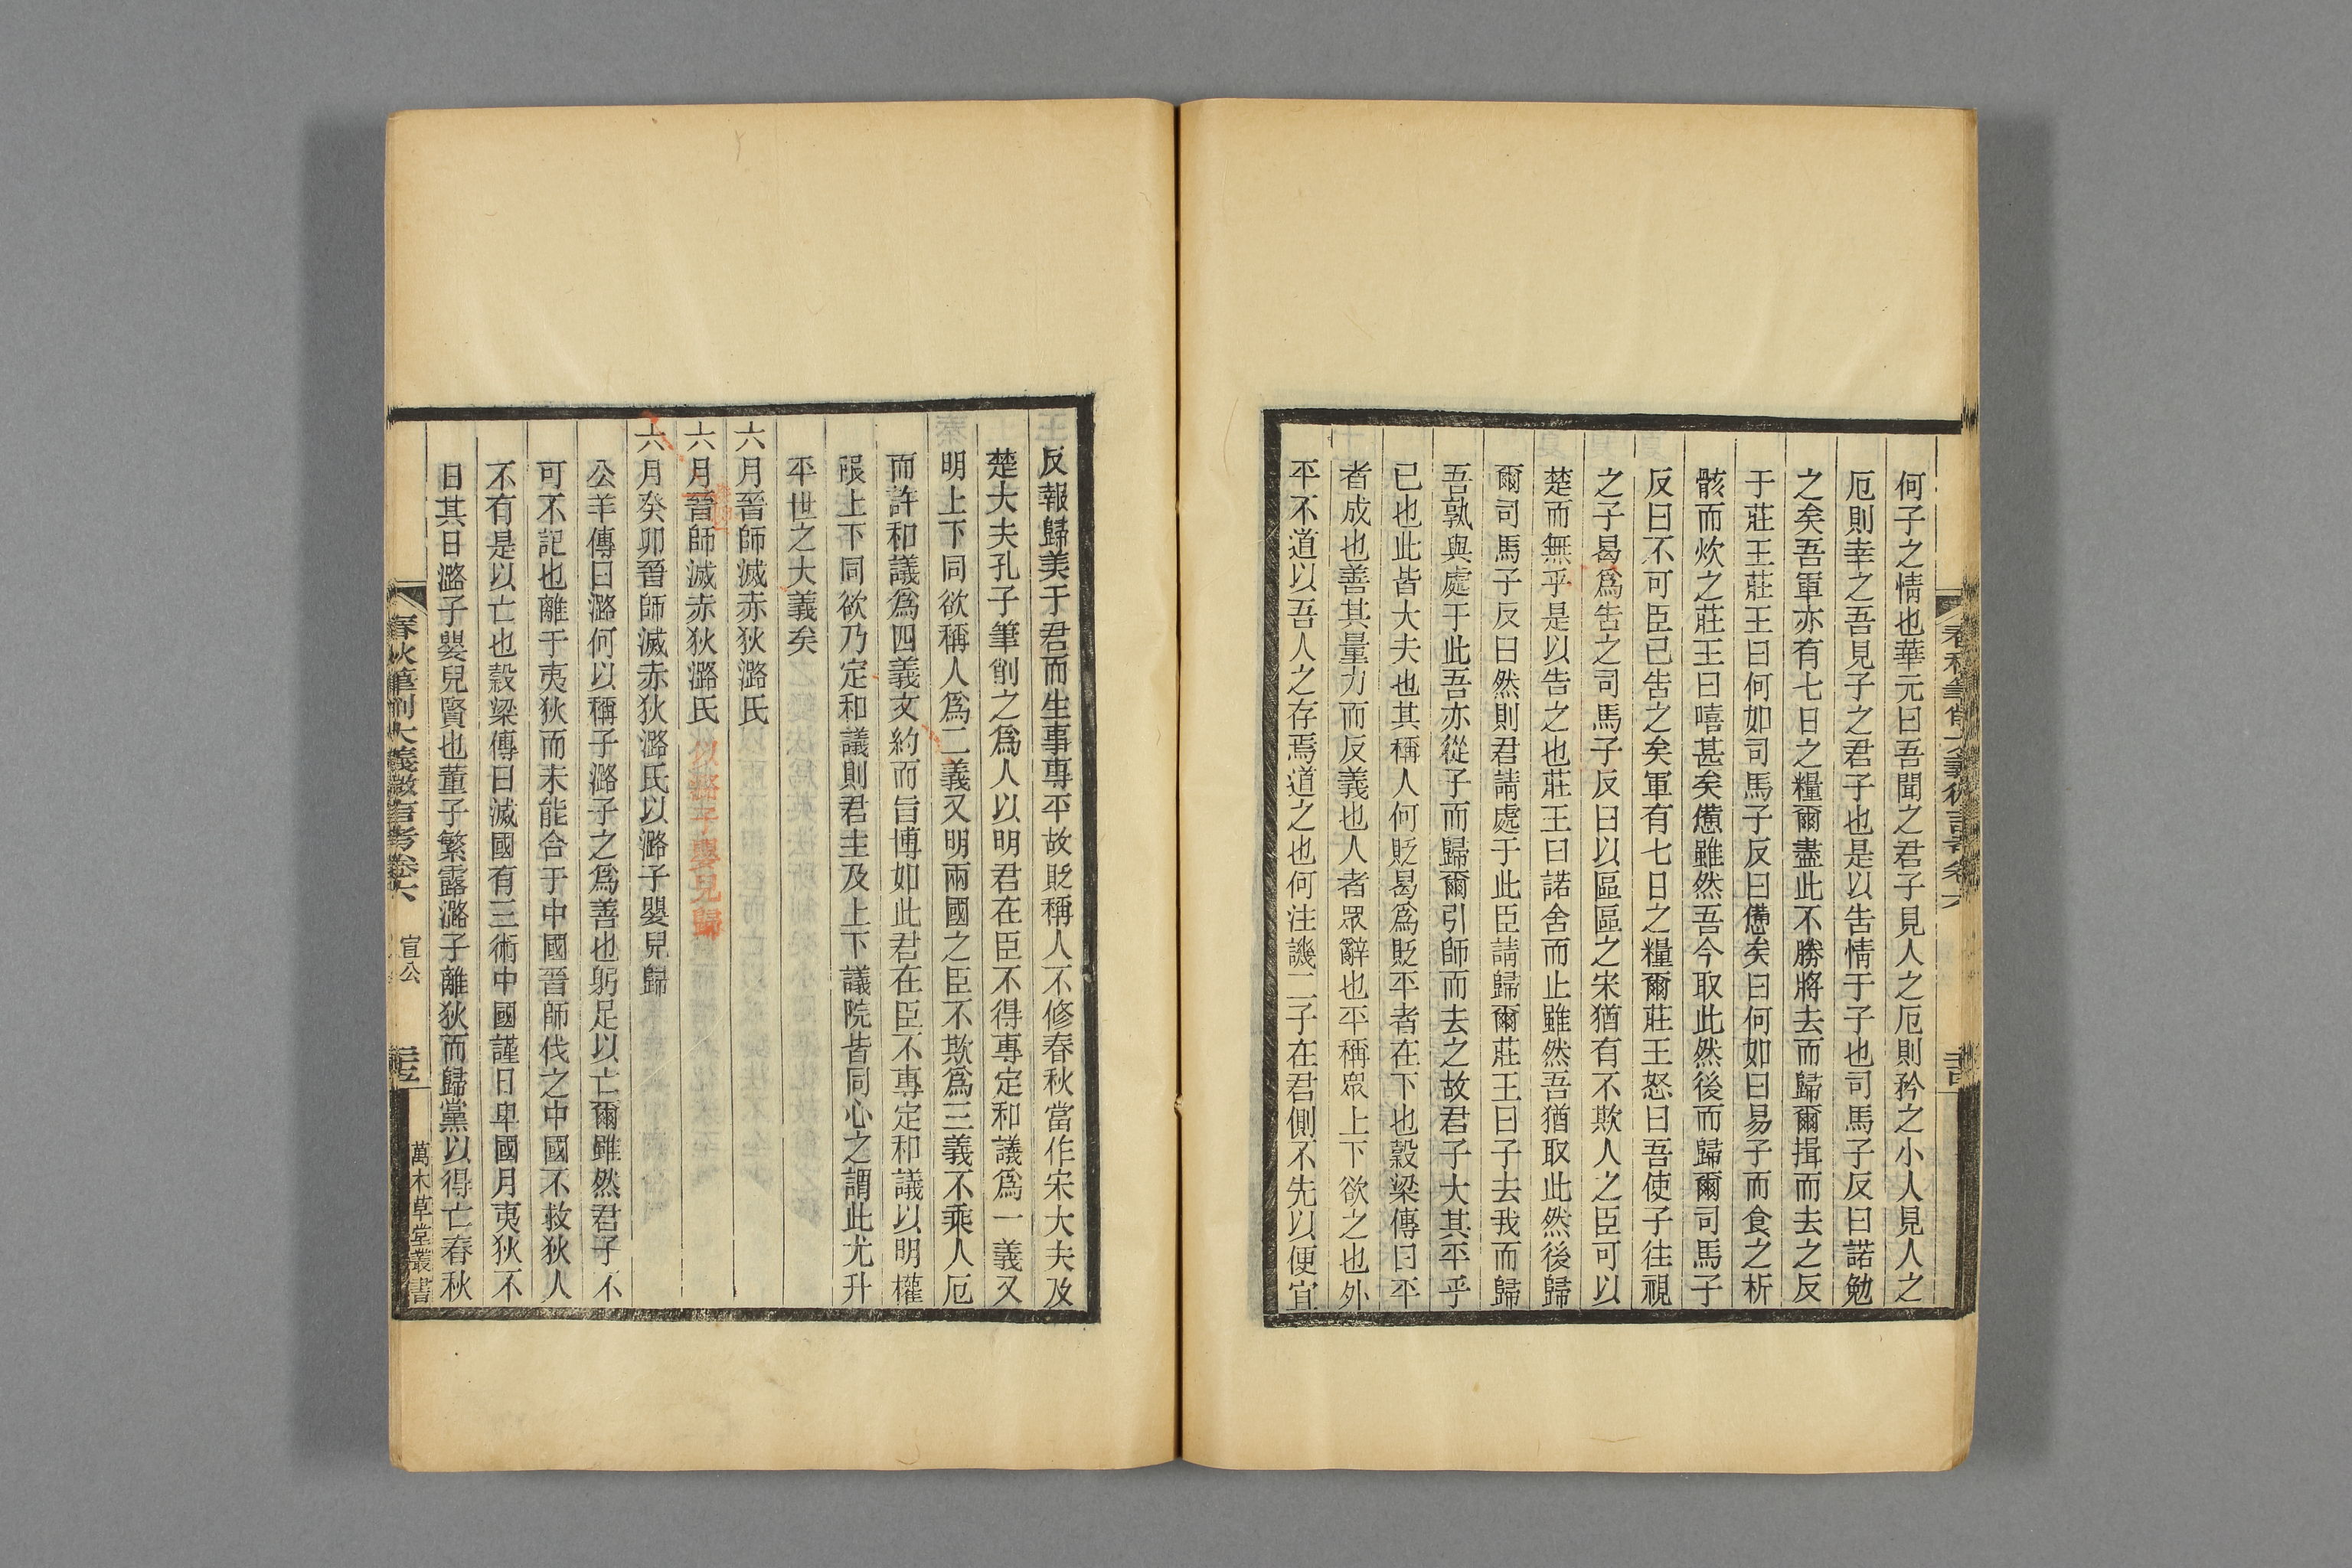 何子之情也華元曰吾聞之君子見人之厄則矜之小人見人之
厄則幸之吾見子之君子也是以告情于子也司馬子反曰諾勉
之矣吾軍亦有七日之糧爾盡此不勝將去而歸爾揖而去之反
于莊王莊王曰何如司馬子反曰憊矣曰何如曰易子而食之析
骸而炊之莊王曰嘻甚矣憊雖然吾今取此然後而歸爾司馬子
反曰不可臣已告之矣軍有七日之糧爾莊王怒曰吾使子往視
之子曷爲告之司馬子反曰以區區之宋猶有不欺人之臣可以
楚而無乎是以告之也莊王曰諾舍而止雖然吾猶取此然後歸
爾司馬子反曰然則君請處于此臣請歸爾莊王曰子去我而歸
吾孰與處于此吾亦從子而歸爾引師而去之故君子大其平乎
已也此皆大夫也其稱人何貶曷爲貶平者在下也穀梁傳曰平
者成也善其量力而反義也人者眾辭也平稱眾上下欲之也外
平不道以吾人之存焉道之也何注譏二子在君側不先以便宜
反報歸美于君而生事專平故貶稱人不修春秋當作宋大夫及
楚大夫孔子筆削之爲人以明君在臣不得專定和議爲一義又
明上下同欲稱人爲二義又明兩國之臣不欺爲三義不乘人厄
而許和議爲四義文約而旨博如此君在臣不專定和議以明權
限上下同欲乃定和議則君主及上下議院皆同心之謂此尤升
平世之大義矣
六月晉師滅赤狄潞氏
六月晉師滅赤狄潞氏以潞子嬰兒歸
六月癸卯晉師滅赤狄潞氏以潞子嬰兒歸
公羊傳曰潞何以稱子潞子之爲善也躬足以亡爾雖然君子不
可不記也離于夷狄而未能合于中國晉師伐之中國不救狄人
不有是以亡也穀梁傳曰滅國有三術中國謹日卑國月夷狄不
日其日潞子嬰兒賢也董子繁露潞子離狄而歸黨以得亡春秋
春秋筆削大義微言考卷六 宣公
萬木草堂叢書